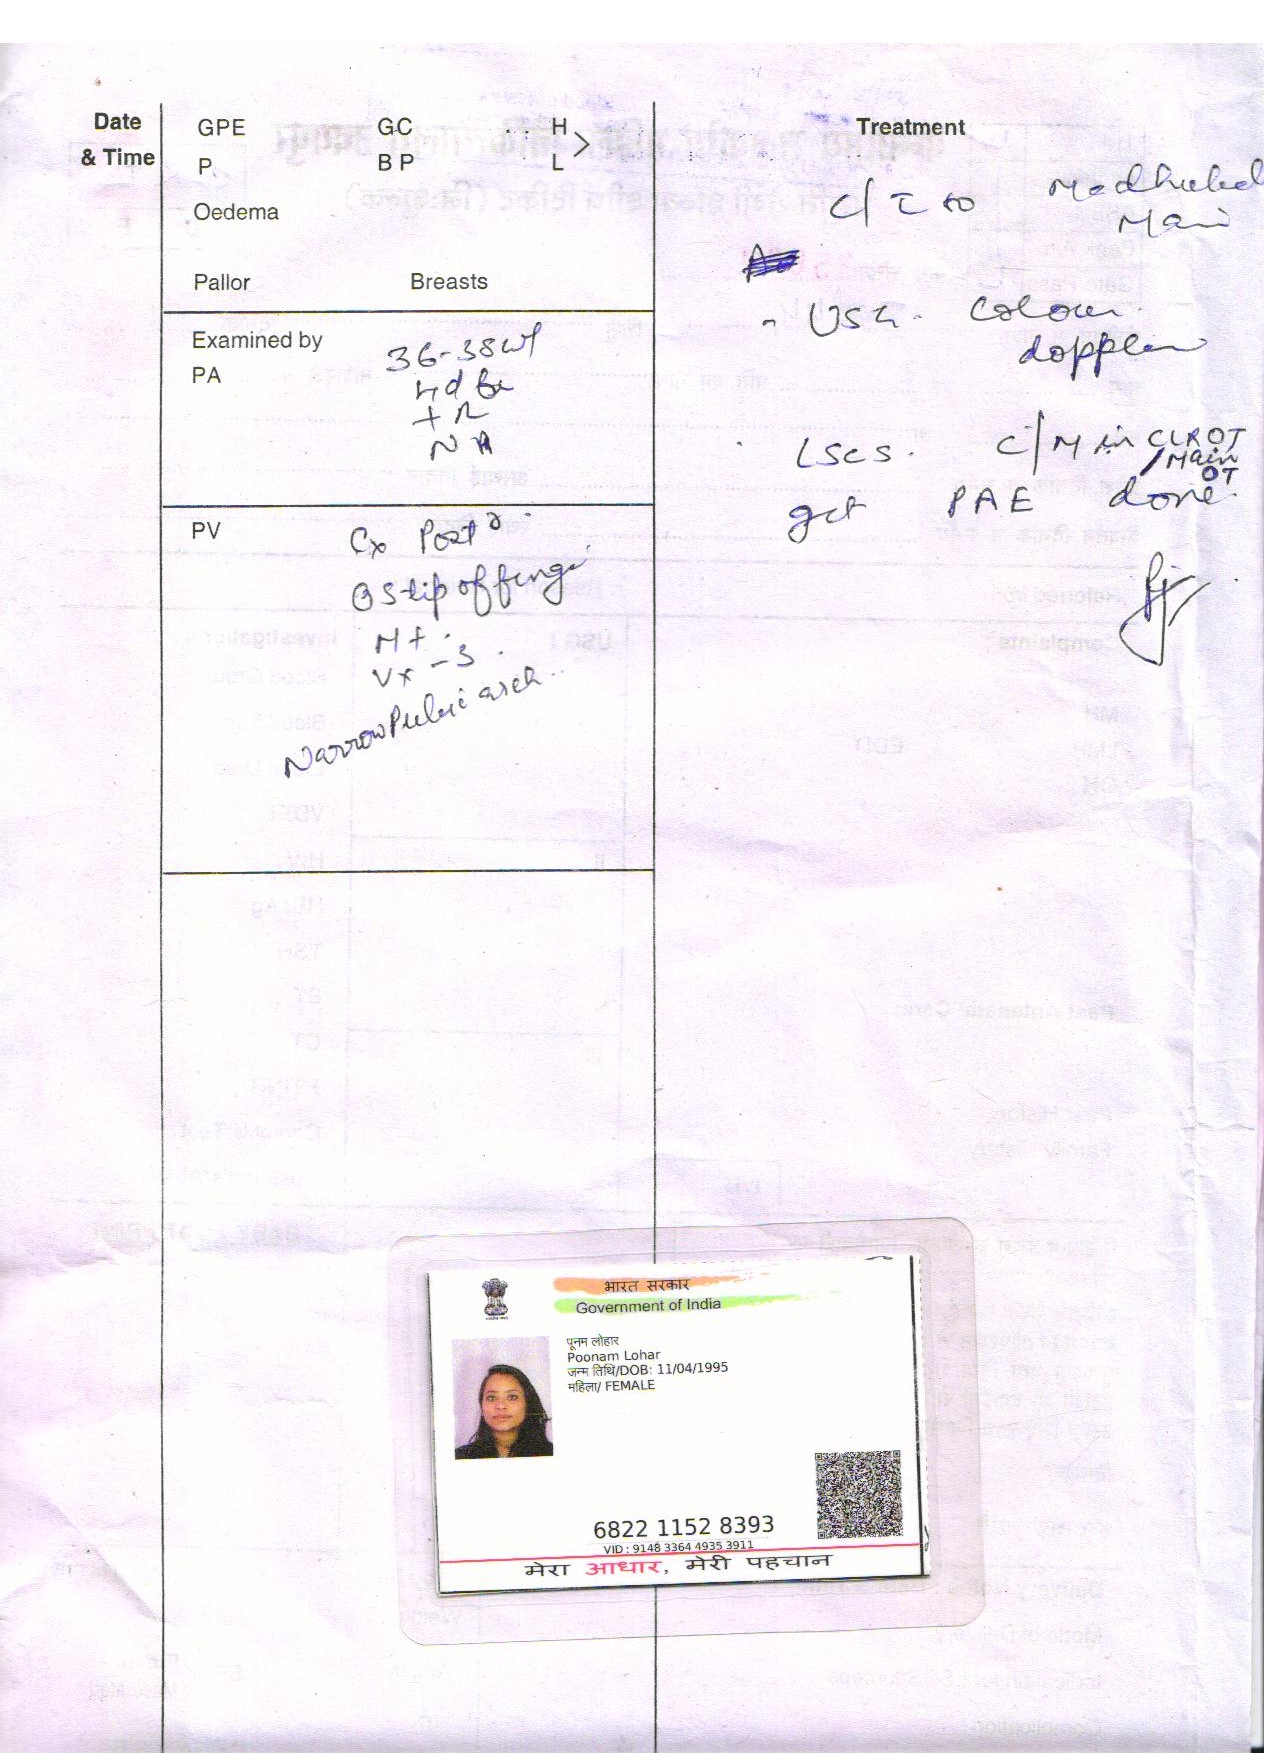 Date
& Time
GPE GC H
P BP L
Oedema
Pallor Breasts
Examined by
PA
36-38wt
+R
NA
PV
Cx Post
OS tip of finge
M+
Vx -3
Narrow Pubic arch
Treatment
C/I to Madhubad
Main
USG. Colour
doppler
LSCS. C/M in CLR OT
/Main
OT
get PAE done.
भारत सरकार
Government of India
पूनम लोहार
Poonam Lohar
जन्म तिथि/DOB: 11/04/1995
महिला/ FEMALE
6822 1152 8393
VID : 9148 3364 4935 3911
मेरा आधार, मेरी पहचान